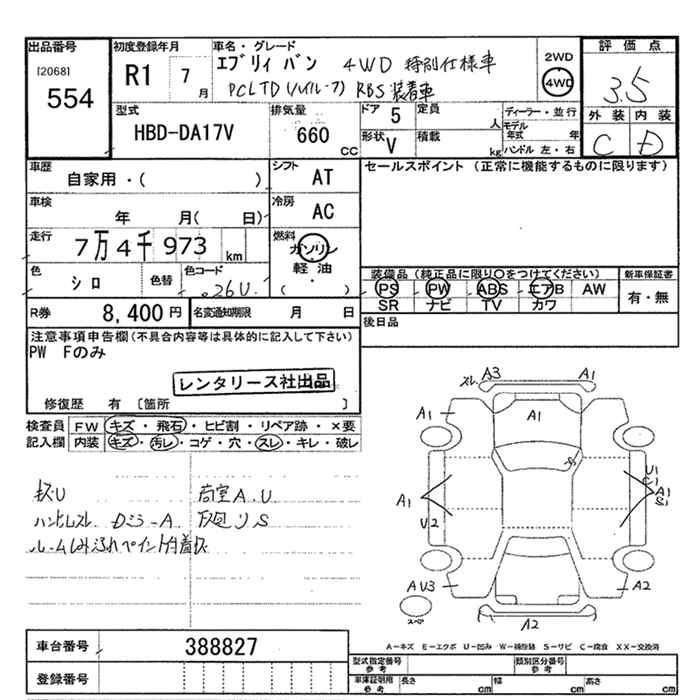 出品番号
[2068]
554
初度登録年月
R1 7 月
車名・グレード
エブリィ バン 4WD 特別仕様車
PCLTD(ハイルーフ) RBS装着車
2WD
4WD
評価点
3.5
外装 内装
C D
型式
HBD-DA17V
排気量
660 CC
ドア 5
形状 V
定員 人
積載 kg
ディーラー・並行
モデル年式 年
ハンドル 左・右
車歴
自家用・( )
シフト AT
セールスポイント (正常に機能するものに限ります)
車検
年 月( 日)
冷房 AC
走行
7万4千973 km
燃料
ガソリン
軽油
( ・ )
色
シロ
色替
色コード
026U
装備品 (純正品に限り○をつけてください)
PS PW ABS エアB AW
SR ナビ TV カワ
新車保証書
有・無
R券 8,400 円
名変通知期限 月 日
後日品
注意事項申告欄(不具合内容等は具体的に記入して下さい)
PW Fのみ
レンタリース社出品
修復歴 有 [箇所 ]
検査員記入欄
FW キズ・飛石・ヒビ割・リペア跡・×要
内装 キズ・汚レ・コゲ・穴・スレ・キレ・破レ
キズU 荷室A.U
ハンドルスレ Dミラ-A 下廻りS
スレ A3 A1
A1 A1 A1
S
A1 U2
U1 C1 A1 S1
AU3 A2
スペア
A2
A-キズ E-エクボ U-凹み W-補修跡 S-サビ C-腐食 XX-交換済
車台番号 388827
登録番号
型式指定番号 参考
類別区分番号 参考
車庫証明用 参考
長さ cm 幅 cm 高さ cm